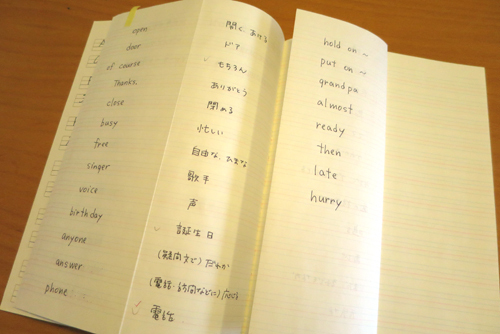 open
door
of course
Thanks.
close
busy
free
singer
voice
birthday
anyone
answer
phone
開く あける
ドア
もちろん
ありがとう
閉める
忙しい
自由な、ひまな
歌手
声
誕生日
(疑問文で) だれか
(電話・訪問などに) 応じる
電話
hold on ~
put on ~
grandpa
almost
ready
then
late
hurry